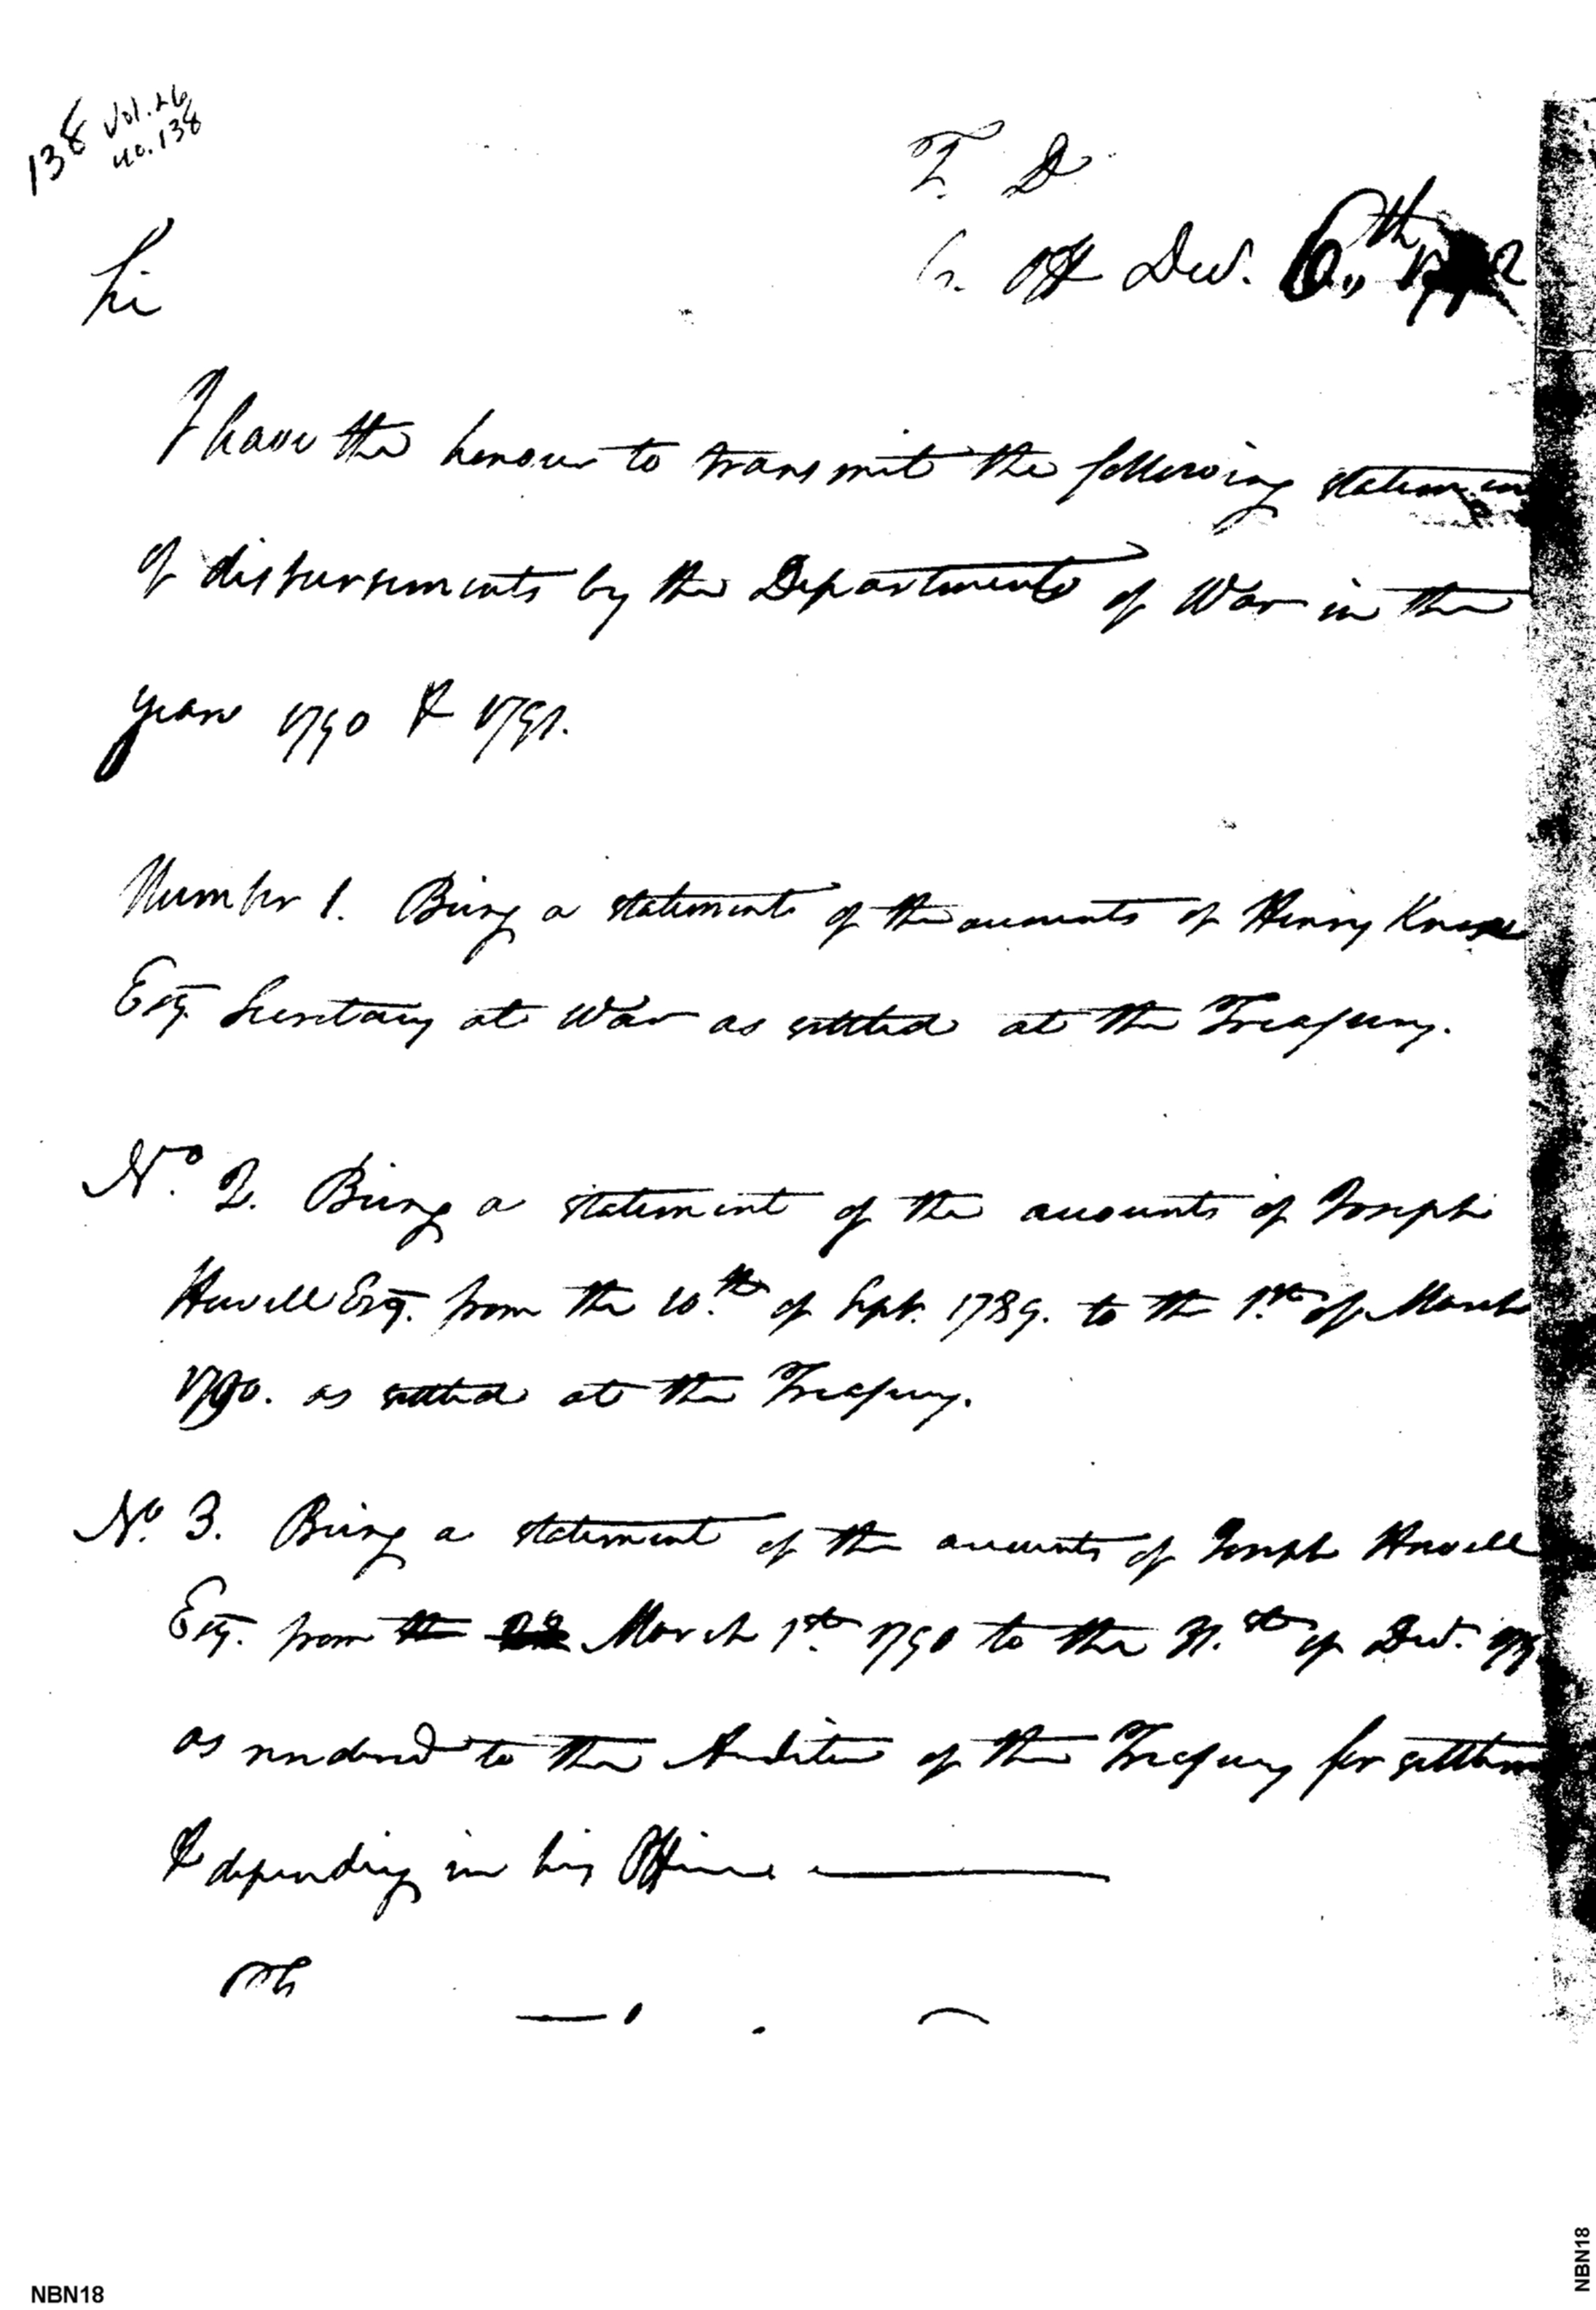 138 Vol. 26
no. 138
T. D
C. Off Decr. 6th,, 1792
Sir
I have the honour to transmit the following statemen
of disbursements by the Department of War in the
years 1790 & 1791.
Number 1. Being a statement of the accounts of Henry Knox
Esq. Secretary at War as settled at the Treasury.
No. 2. Being a statement of the accounts of Joseph
Howell Esq. from the 10.th of Sept. 1789. to the 1.st of March
1790. as settled at the Treasury.
No. 3. Being a statement of the accounts of Joseph Howell
Esq. from the March 1st. 1790 to the 31.st of Decr.
as rendered to the Auditor of the Treasury for settlem
& depending in his Office
NBN18
NBN18